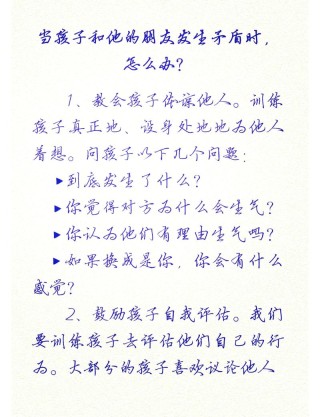 当孩子和他的朋友发生矛盾时，
怎么办？
1、教会孩子体谅他人。训练
孩子真正地、设身处地地为他人
着想。问孩子以下几个问题：
▶到底发生了什么？
▶你觉得对方为什么会生气？
▶你认为他们有理由生气吗？
▶如果换成是你，你会有什么
感觉？
2、鼓励孩子自我评估。我们
要训练孩子去评估他们自己的行
为。大部分的孩子喜欢议论他人